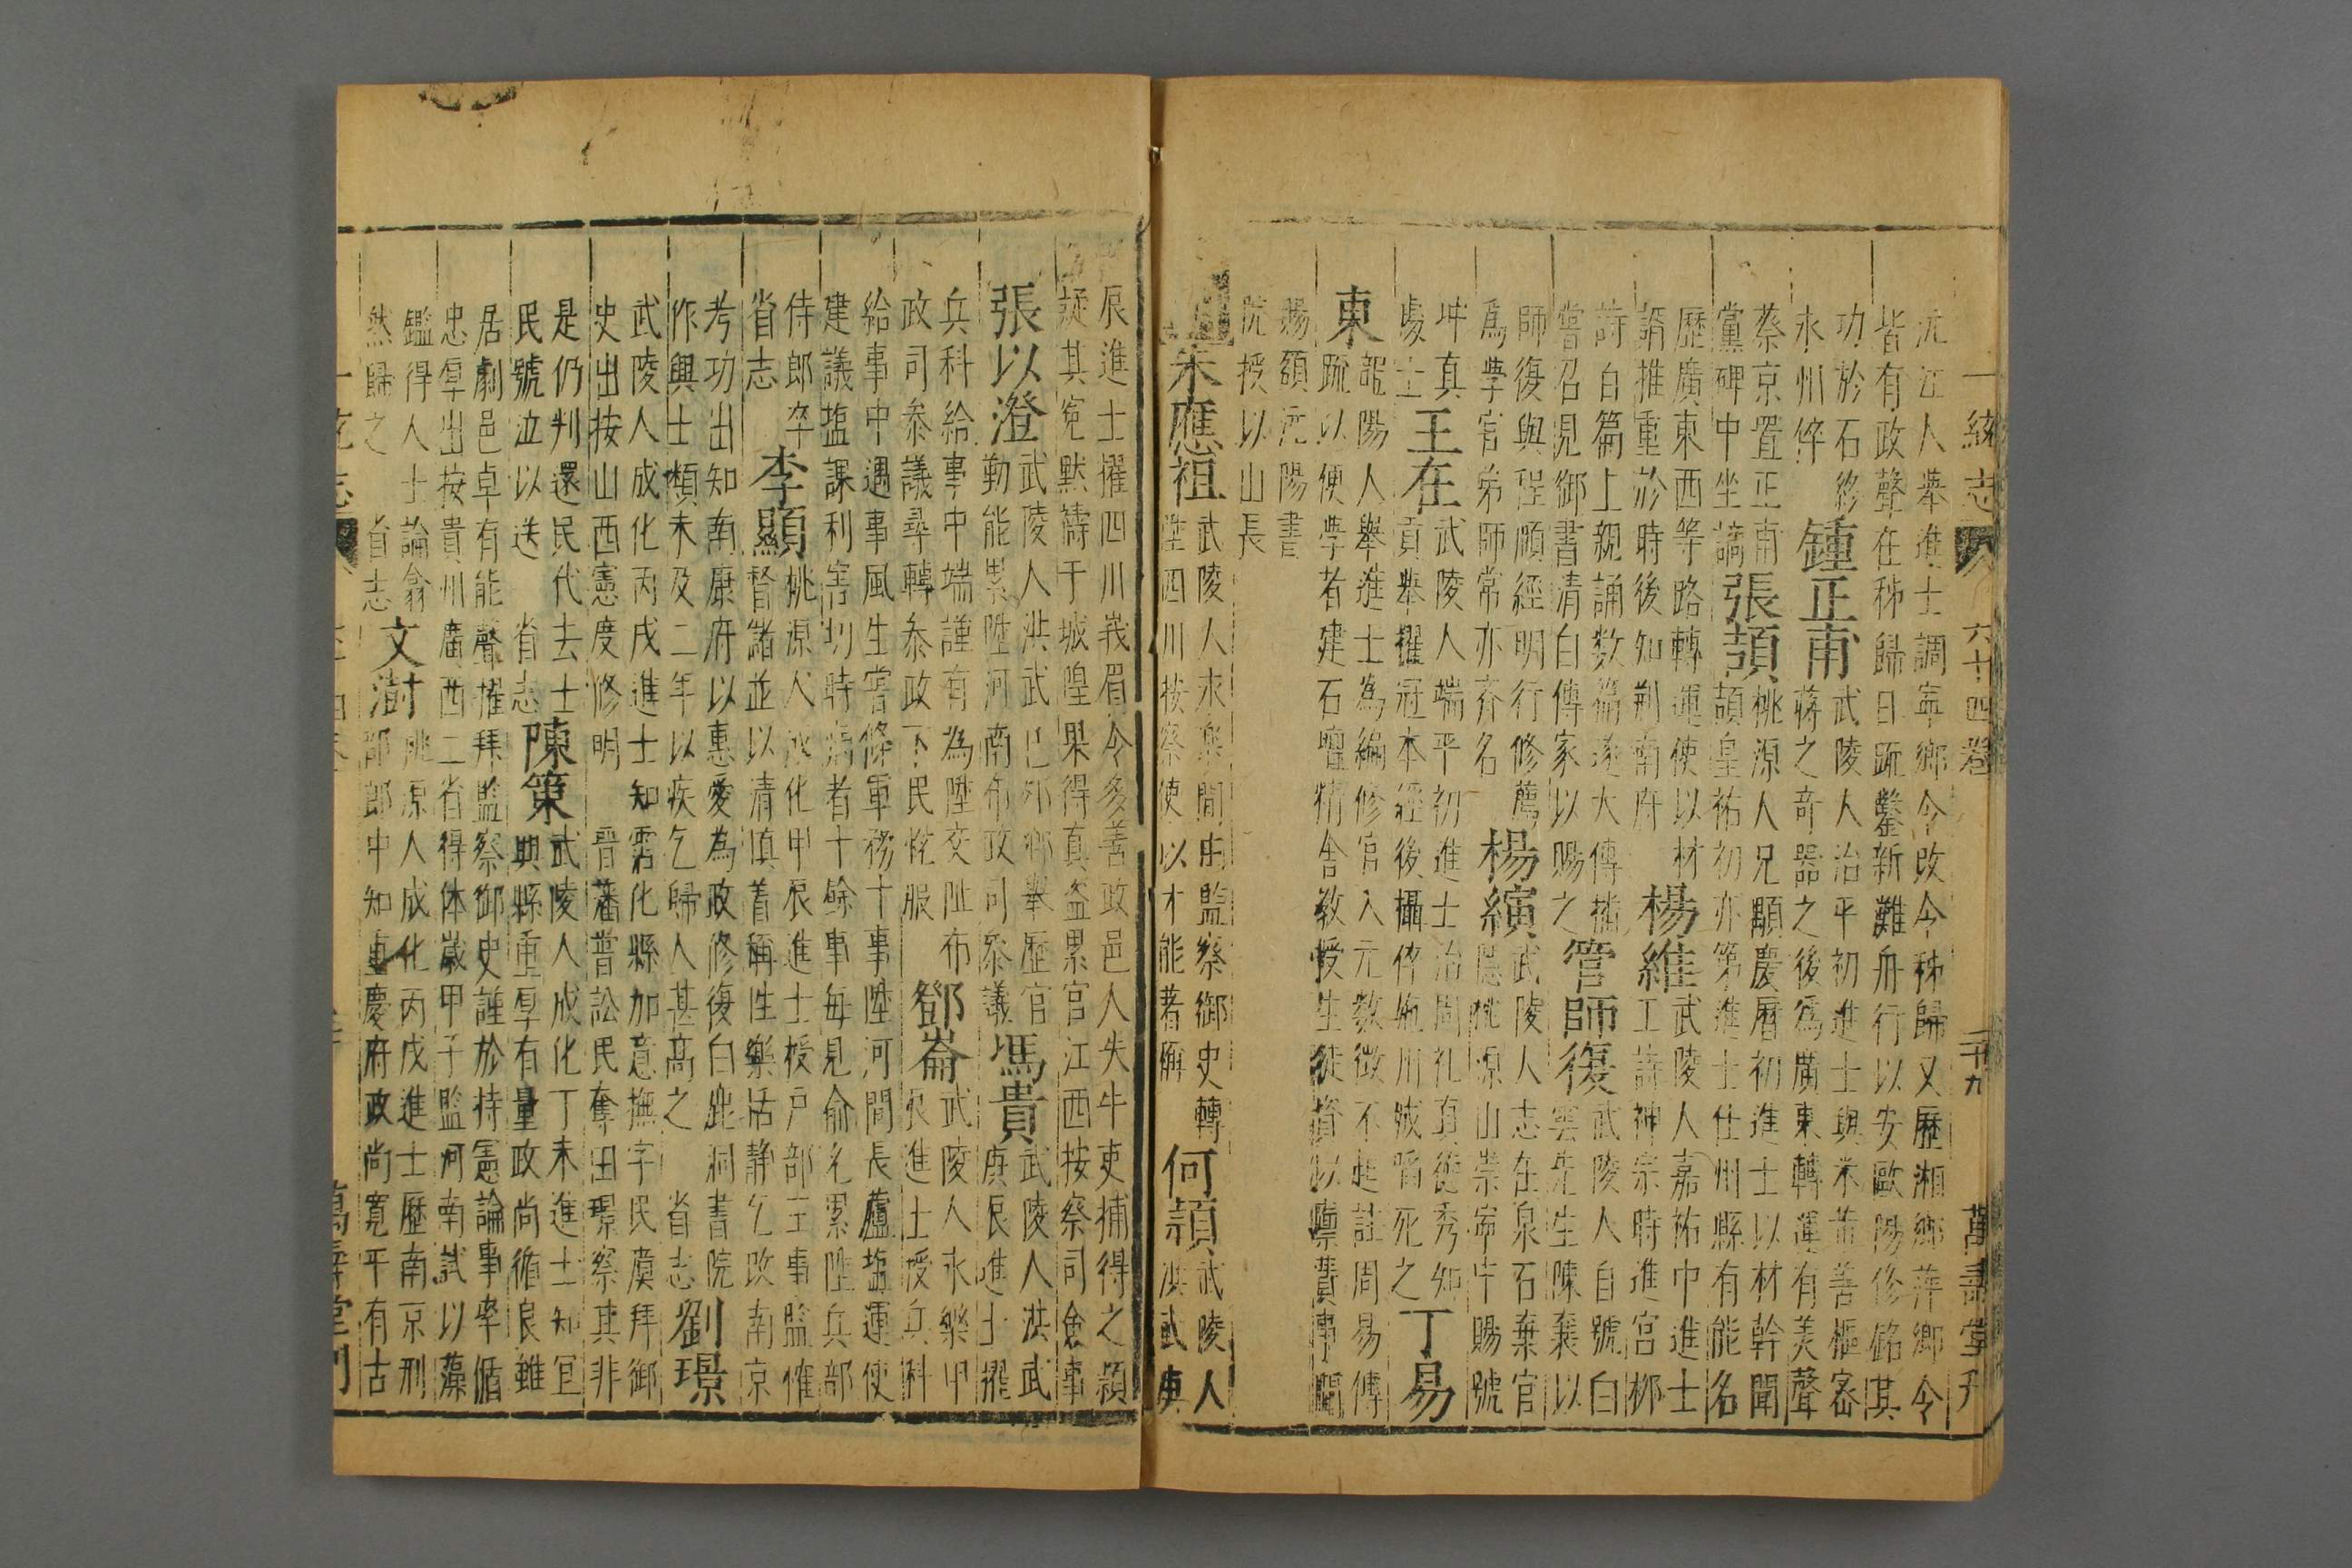 一統志
六十四卷
二十九
萬壽堂刋
沅江人舉進士調寧鄉令改令秭歸又歷湘鄉萍鄉令
皆有政聲在秭歸日䟽鑿新灘舟行以安歐陽修銘其
功於石終
永州倅
鍾正甫
武陵人治平初進士與米芾善樞宻
蔣之奇器之後爲廣東轉運有美聲
蔡京置正甫
黨碑中坐謫
張頡
桃源人兄顒慶曆初進士以材幹聞
頡皇祐初亦第進士仕州縣有能名
歷廣東西等路轉運使以材
諝推重於時後知荆南府
楊維
武陵人嘉祐中進士
工詩神宗時進宫栁
詩百篇上親誦数篇遂大傳播
嘗召見御書清白傳家以賜之
管師復
武陵人自號白
雲先生陳襄以
師復與程頤經明行修薦
爲學官弟師常亦齐名
楊縯
武陵人志在泉石棄官
隱桃源山崇寧中賜號
坤真
處士
王在
武陵人端平初進士治周礼真德秀知
貢舉擢冠本經後攝倅施川城陷死之
丁易
東
龍陽人舉進士為編修官入元数徵不起註周易傳
䟽以便學者建石壇精舎教授生徒資以廪費事聞
揚額沅陽書
院授以山長
朱應祖
武陵人永樂間由監察御史轉
陞四川按察使以才能著廨
何頴
武陵人
洪武庚
辰進士擢四川峩眉令多善政邑人失牛吏捕得之頴
疑其寃黙禱于城隍果得真盗累官江西按察司僉事
張以澄
武陵人洪武已卯鄉舉歷官
勤能累陞河南布政司叅議
馮貴
武陵人洪武
庚辰進士擢
兵科給事中端謹有為陞交阯布
政司叅議尋轉叅政下民恱服
鄧崙
武陵人永樂甲
辰進士授兵科
給事中遇事風生嘗條軍務十事陞河間長蘆塩運使
建議塩課利害切時病者十餘事每見俞允累陞兵部
侍郎卒
省志
李顯
桃源人成化甲辰進士授户部主事監䅮
督諸並以清慎着稱性樂恬静乞改南京
考功出知南康府以惠愛為政修復白鹿洞書院
作興士類未及二年以疾乞歸人甚髙之
省志
劉璟
武陵人成化丙戌進士知霑化縣加意撫字民虞拜御
史出按山西憲度修明
晋藩嘗訟民奪田璟察其非
是仍判還民代去士
民號泣以送
省志
陳策
武陵人成化丁未進士知冝
興縣重厚有量政尚循良雖
居劇邑卓有能聲擢拜監察御史謹於持憲論事率循
忠厚出按貴州廣西二省得体歲甲子監河南試以藻
鑑得人士論翕
然歸之
省志
文澍
桃源人成化丙戌進士歷南京刑
部郎中知重慶府政尚寛平有古
萬壽堂刋